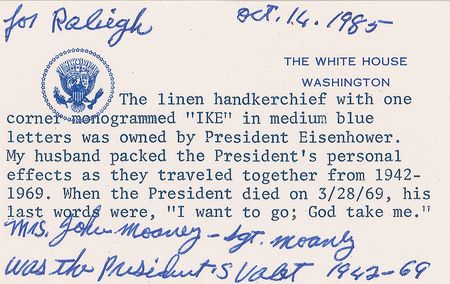 for Raliegh
Oct. 14. 1985
THE WHITE HOUSE
WASHINGTON
The linen handkerchief with one
corner monogrammed "IKE" in medium blue
letters was owned by President Eisenhower.
My husband packed the President's personal
effects as they traveled together from 1942-
1969. When the President died on 3/28/69, his
last words were, "I want to go; God take me."
Mrs. John Moaney - Sgt. Moaney
was the President's Valet 1942-69